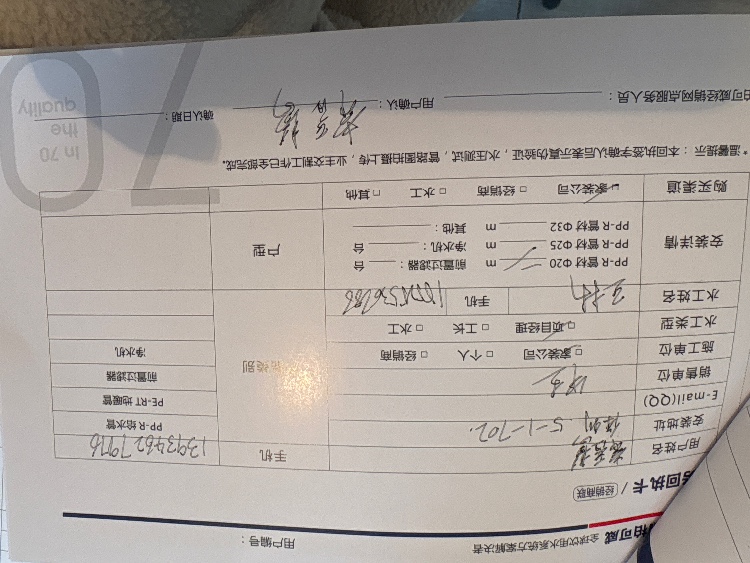 柏可威 全球饮用水系统方案解决者 用户编号：
回执卡 / 经销商联
用户姓名 手机 13934627976
安装地址 5-1-702. PP-R 给水管
E-mail(QQ) PE-RT 地暖管
销售单位 前置过滤器
施工单位 □家装公司 □个人 □经销商 净水机
水工类型 □项目经理 □工长 □水工
水工姓名 手机
安装详情 PP-R 管材 Φ20 m 前置过滤器： 台 户型
PP-R 管材 Φ25 m 净水机： 台
PP-R 管材 Φ32 m 其他：
购买渠道 □家装公司 □经销商 □水工 □其他
*温馨提示：本回执签字确认后表示真伪验证，水压测试，管路图拍摄上传，业主交割工作已全部完成。
柏可威经销网点服务人员： 用户确认： 确认日期：
In 70
the
quality
70